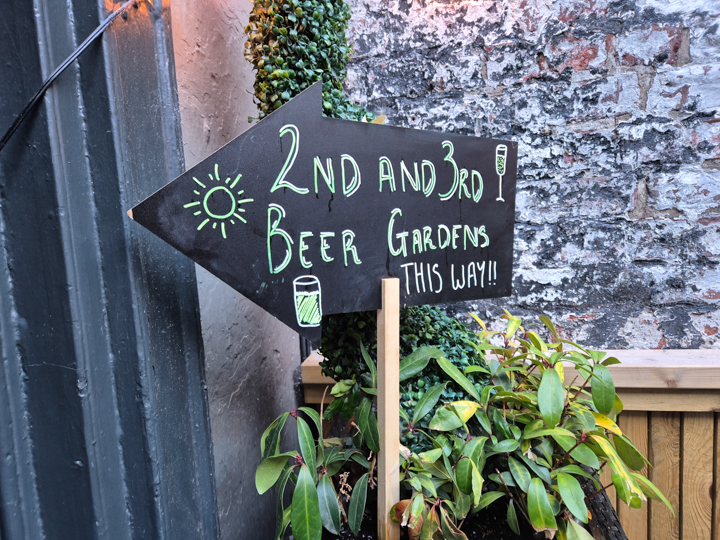 2ND AND 3RD
BEER GARDENS
THIS WAY!!